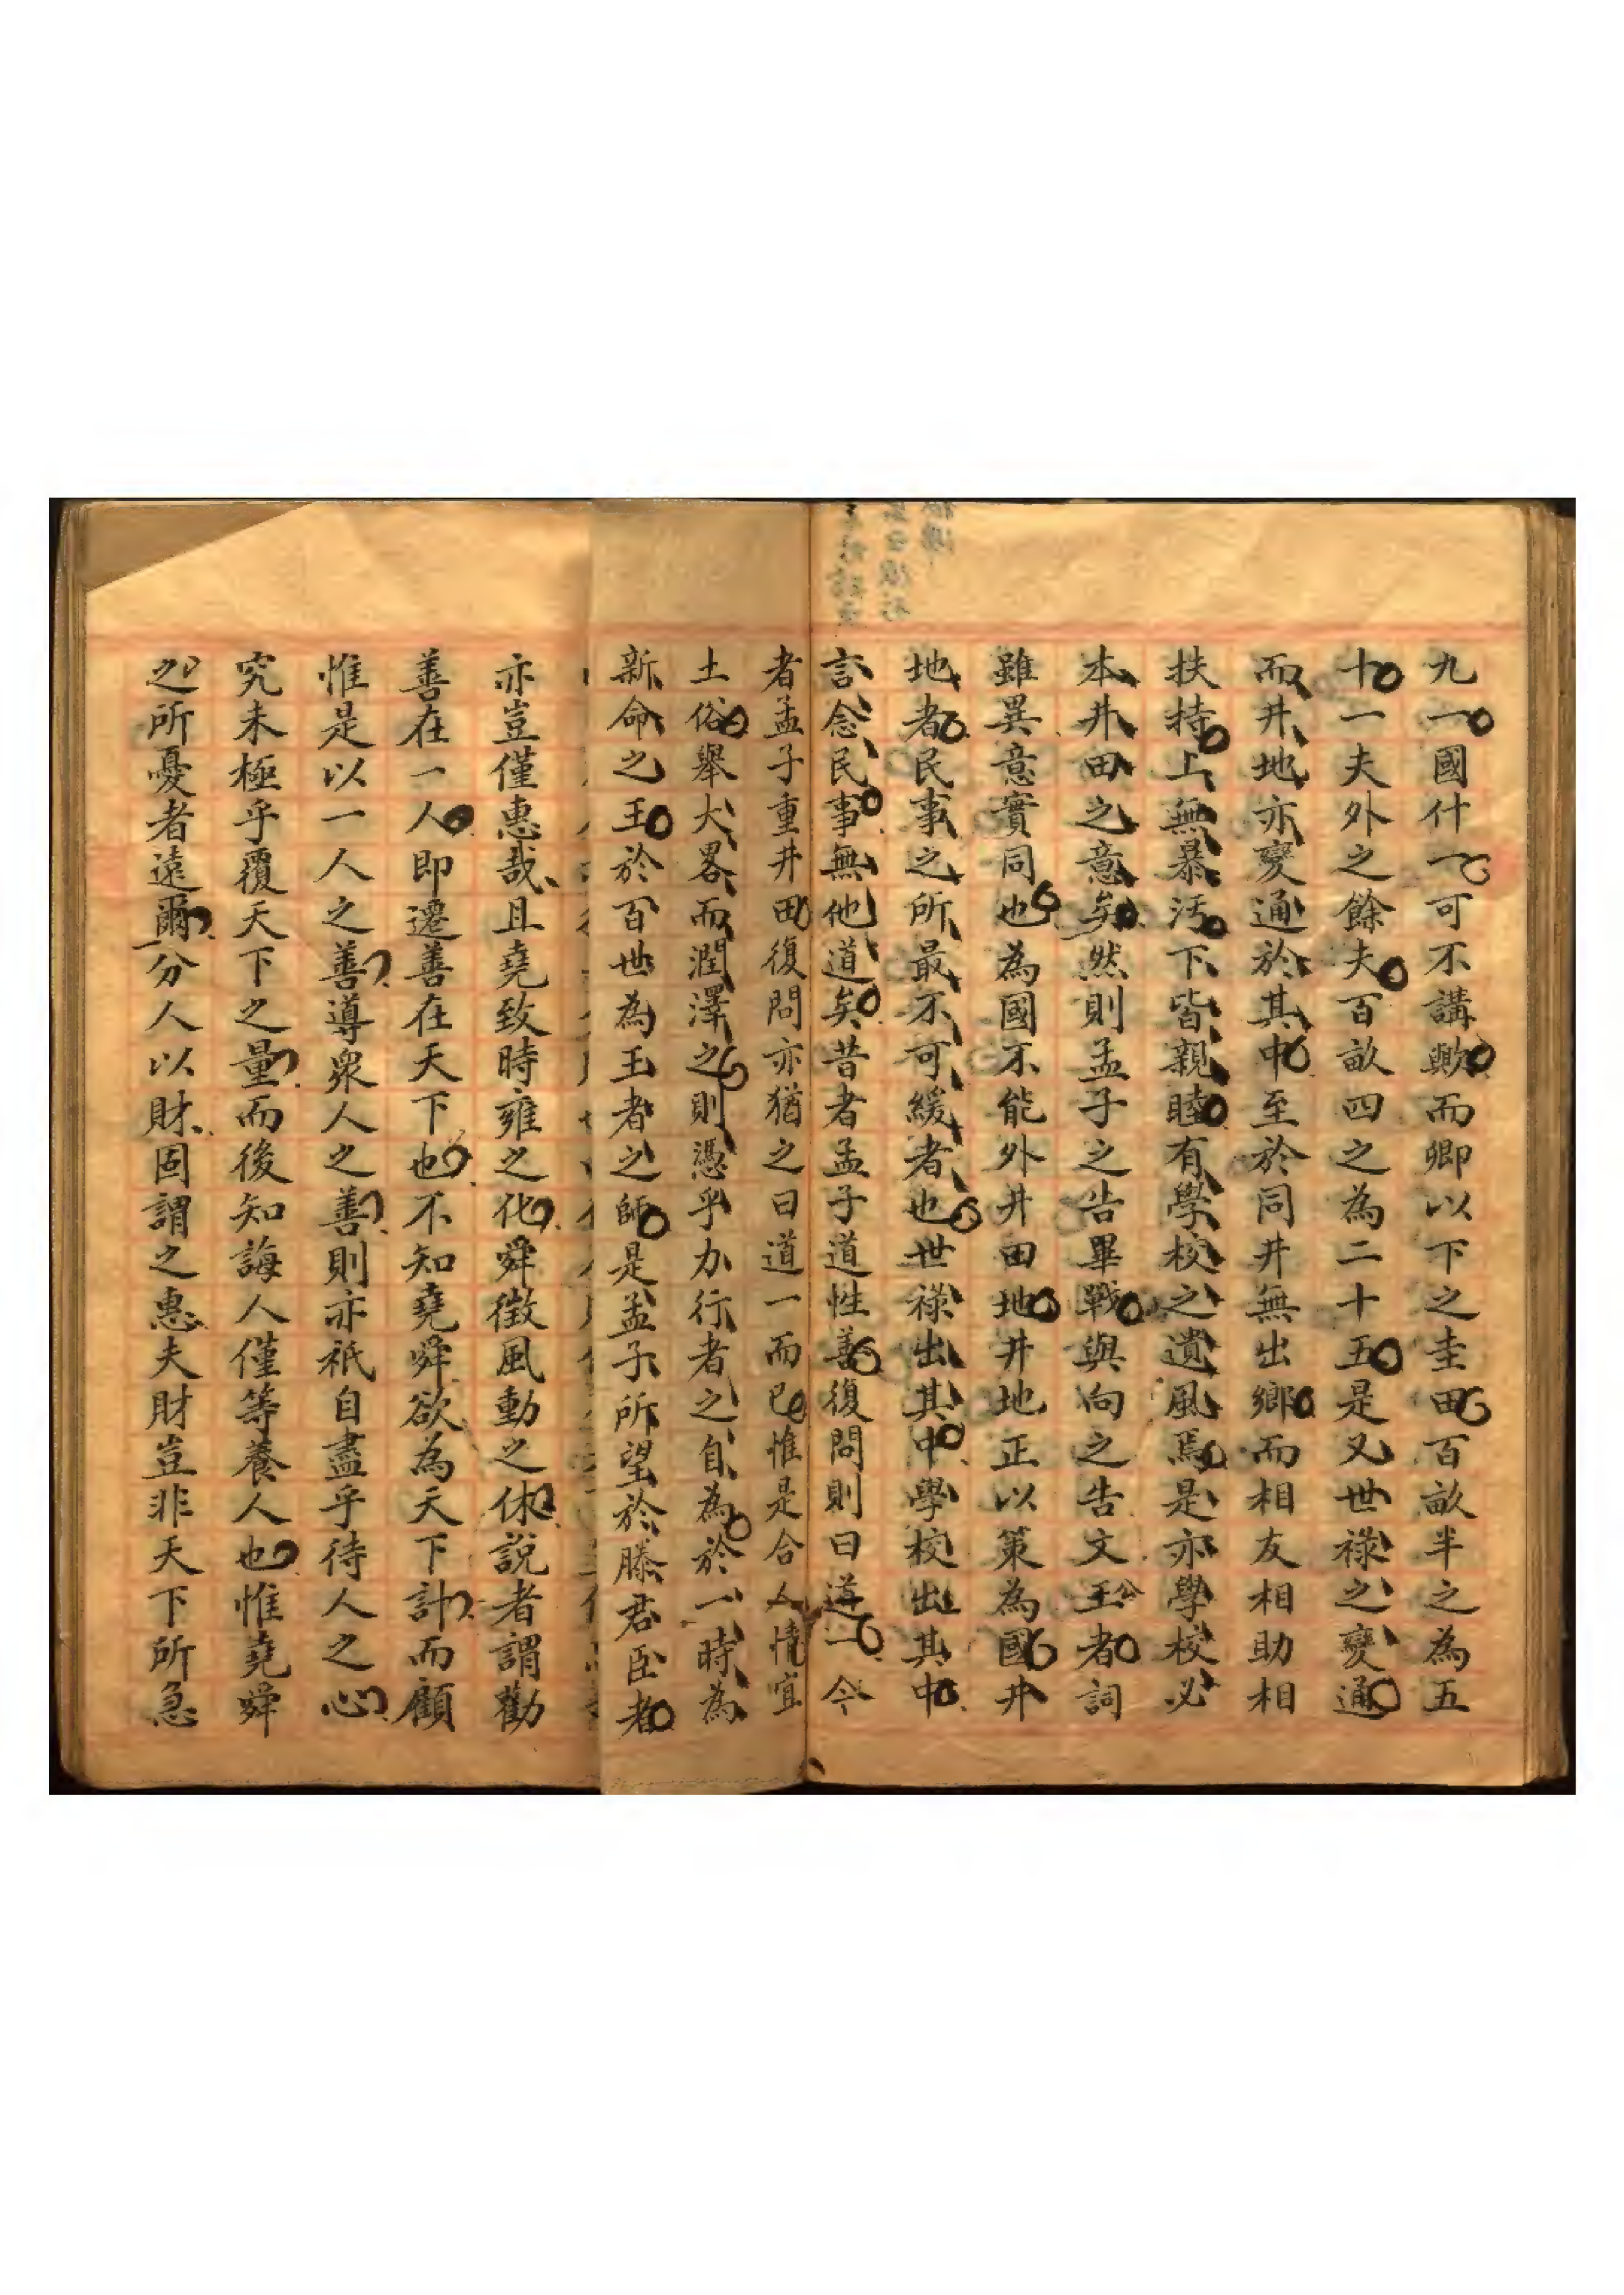 九一國什一可不講歟而卿以下之圭田百畝半之為五
十一夫外之餘夫百畝四之為二十五是又世祿之變通
而井地亦變通於其中至於同井無出鄉而相友相助相
扶持上無暴汚下皆親睦有學校之遺風焉是亦學校必
本井田之意矣然則孟子之告畢戰與向之告文王公者詞
雖異意實同也為國不能外井田地井地正以策為國井
地者民事之所最不可緩者也世祿出其中學校出其中
言念民事無他道矣昔者孟子道性善復問則曰道一今
者孟子重井田復問亦猶之曰道一而已惟是合人情宜
土俗舉大畧而潤澤之則憑乎力行者之自為於一時為
新命之王於百世為王者之師是孟子所望於滕君臣者
亦豈僅惠哉且堯致時雍之化舜徵風動之休說者謂勸
善在一人即遷善在天下也不知堯舜欲為天下計而顧
惟是以一人之善導衆人之善則亦祇自盡乎待人之心
究未極乎覆天下之量而後知誨人僅等養人也惟堯舜
之所憂者遠爾分人以財固謂之惠夫財豈非天下所急